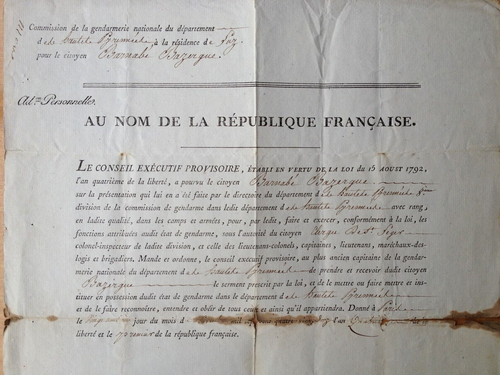 Commission de la gendarmerie nationale du département
de à la résidence de
pour le citoyen Barnabé Bazergue.
Ad.on Personnelle.
AU NOM DE LA RÉPUBLIQUE FRANÇAISE.
LE CONSEIL EXÉCUTIF PROVISOIRE, ÉTABLI EN VERTU DE LA LOI DU 15 AOUST 1792,
l'an quatrième de la liberté, a pourvu le citoyen Barnabé Bazergue.
sur la présentation qui lui en a été faite par le directoire du département de
division de la commission de gendarmerie dans ledit département de avec rang,
en ladite qualité, dans les camps et armées, pour, par ledit, faire et exercer, conformément à la loi, les
fonctions attribuées audit état de gendarme, sous l'autorité du citoyen
colonel-inspecteur de ladite division, et celle des lieutenans-colonels, capitaines, lieutenans, maréchaux-des-
logis et brigadiers. Mande et ordonne, le conseil exécutif provisoire, au plus ancien capitaine de la gendar-
merie nationale du département de de prendre et recevoir dudit citoyen
Bazergue le serment prescrit par la loi, et de le mettre ou faire mettre et ins-
tituer en possession dudit état de gendarme dans le département de
et de le faire reconnoître, entendre et obéir de tous ceux et ainsi qu'il appartiendra. Donné à Paris
le jour du mois d mil sept cent quatre l'an de la
liberté et le premier de la république française.